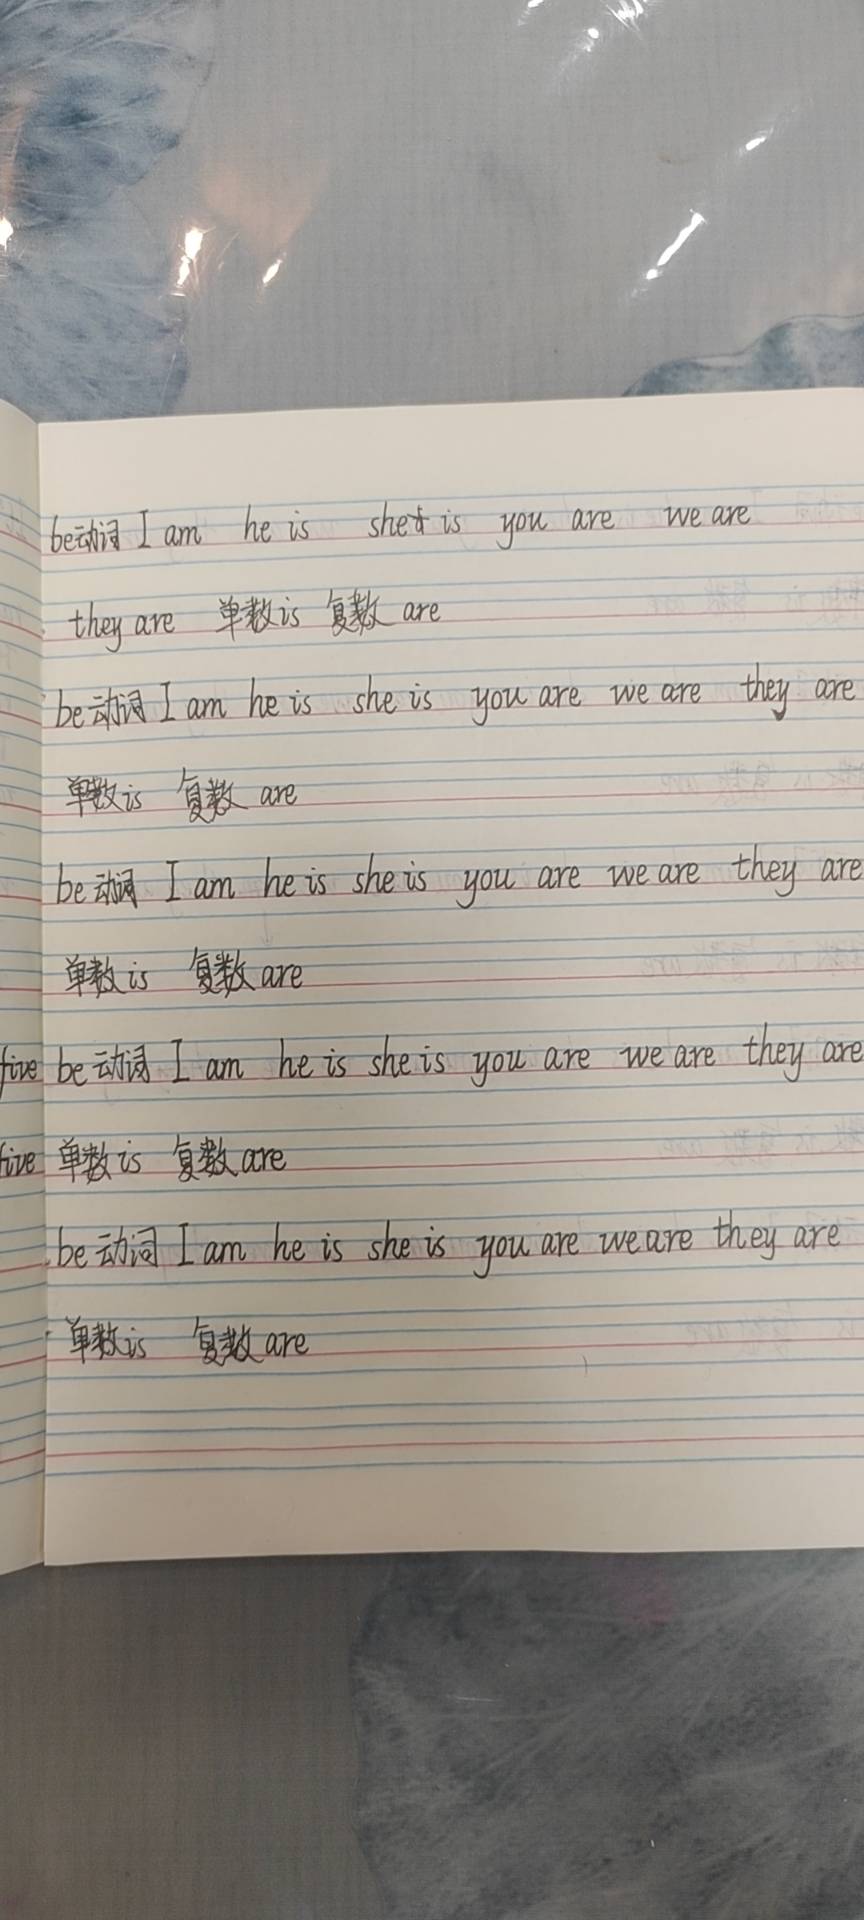 be动词 I am he is she is you are we are
they are 单数is 复数 are
be动词 I am he is she is you are we are they are
单数is 复数 are
be动词 I am he is she is you are we are they are
单数is 复数are
five be动词 I am he is she is you are we are they are
five 单数is 复数are
be动词 I am he is she is you are we are they are
单数is 复数are